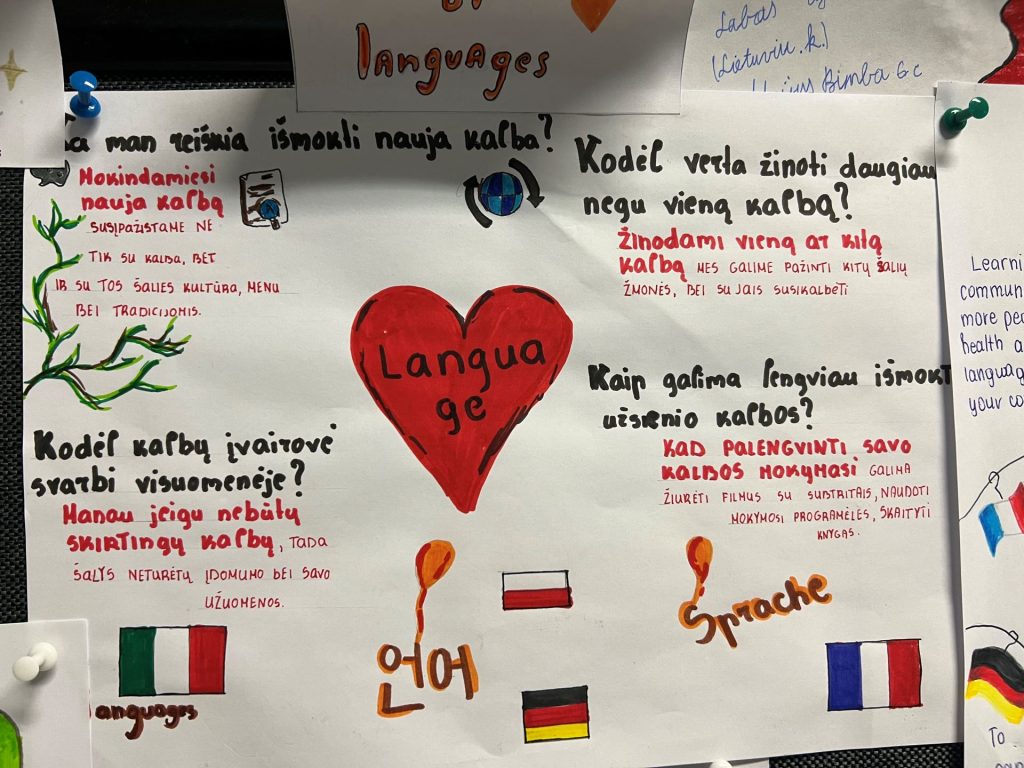 languages
Labas
(Lietuvių.k.)
Bimba 6c
man reiškia išmokti nauja kalba?
Mokindamiesi
nauja kalbą
SUSIPAŽISTAME NE
TIK SU KALBA, BET
IR SU TOS ŠALIES KULTŪRA, MENU
BEI TRADICIJOMIS.
Kodėl verta žinoti daugiau
negu vieną kalbą?
Žinodami vieną ar kitą
kalbą MES GALIME PAŽINTI KITŲ ŠALIŲ
ŽMONĖS, BEI SU JAIS SUSIKALBĖTI
Langua
ge
Kodėl kalbų įvairovė
svarbi visuomenėje?
Manau jeigu nebūtų
skirtingų kalbų, TADA
ŠALYS NETURĖTŲ ĮDOMUMO BEI SAVO
UŽUOMENOS.
Kaip galima lengviau išmokt
užsienio kalbos?
KAD PALENGVINTI SAVO
KALBOS MOKYMĄSI GALIMA
ŽIURĖTI FILMUS SU SUBTRITAIS, NAUDOTI
MOKYMOSI PROGRAMĖLĖS, SKAITYTI
KNYGAS.
언어
Sprache
anguages
Learni
commun
more pe
health a
languag
your co
To